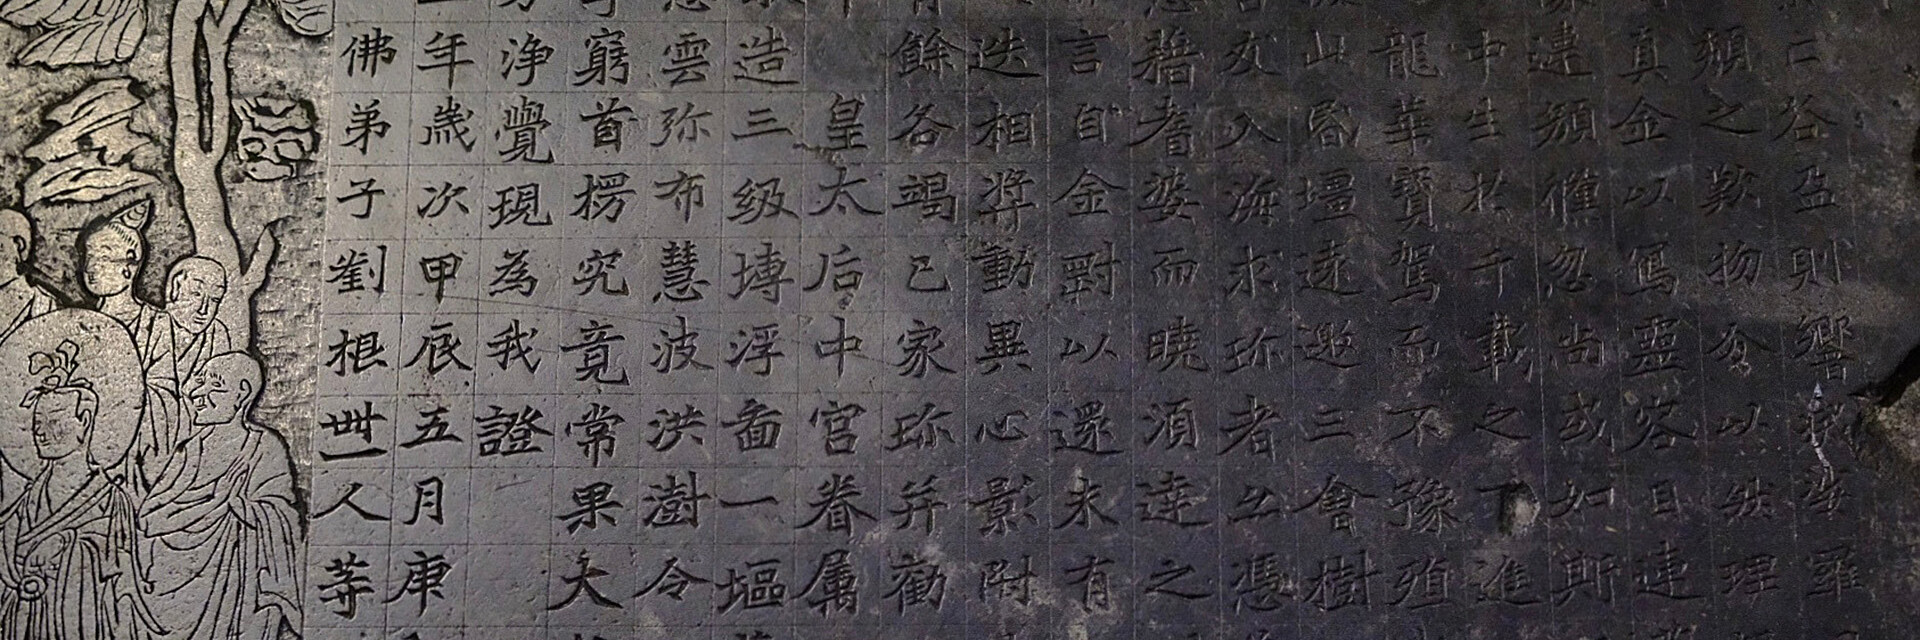 亡谷盈則響滅娑羅
頹之歎物分以然理
真金以寫靈容目連
違顏倏忽尚或如斯
中生於千載之下進
龍華寶駕而不豫殖
此昏壃遠邀三會樹
友入海求珎者必憑
藉耆婆而曉須達之
言自金對以還未有
迭相將動異心影附
餘各竭己家珎并勸
皇太后中宮眷属
造三级塼浮啚一塸
雲弥布慧波洪澍令
窮首楞究竟常果大
浄覺現為我證
年歲次甲辰五月庚
佛弟子劉根卌一人等